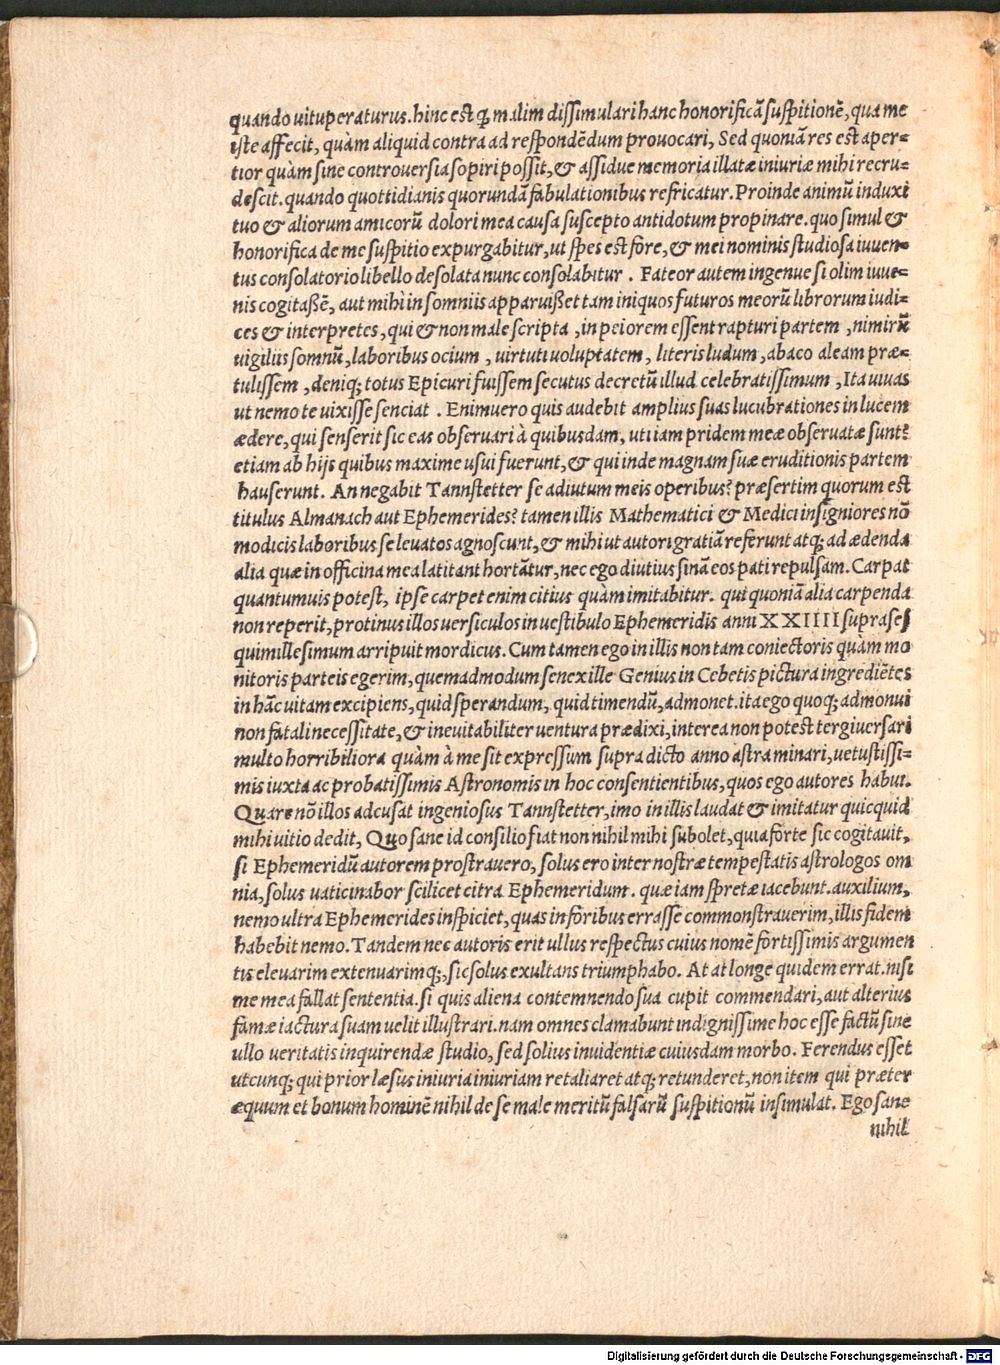 quando uituperaturus. hinc est ꝙ malim dissimulari hanc honorificā suspitionē, qua me
iste affecit, quàm aliquid contra ad respondēdum prouocari, Sed quoniā res est aper=
tior quàm sine controuersia sopiri possit, & assidue memoria illatæ iniuriæ mihi recru=
descit. quando quottidianis quorundā fabulationibus refricatur. Proinde animū induxi
tuo & aliorum amicorū dolori mea causa suscepto antidotum propinare. quo simul &
honorifica de me suspitio expurgabitur, ut spes est fore, & mei nominis studiosa iuuen=
tus consolatorio libello desolata nunc consolabitur . Fateor autem ingenue si olim iuue=
nis cogitaßē, aut mihi in somniis apparuißet tam iniquos futuros meorū librorum iudi=
ces & interpretes, qui & non male scripta , in peiorem essent rapturi partem , nimirū
uigiliis somnū, laboribus ocium , uirtuti uoluptatem , literis ludum, abaco aleam præ=
tulissem , deniq; totus Epicuri fuissem secutus decretū illud celebratissimum , Ita uiuas
ut nemo te uixisse senciat . Enimuero quis audebit amplius suas lucubrationes in lucem
ædere, qui senserit sic eas obseruari à quibusdam, uti iam pridem meæ obseruatæ sunt?
etiam ab hijs quibus maxime usui fuerunt, & qui inde magnam suæ eruditionis partem
hauserunt. An negabit Tannstetter se adiutum meis operibus? præsertim quorum est
titulus Almanach aut Ephemerides? tamen illis Mathematici & Medici insigniores nō
modicis laboribus se leuatos agnoscunt, & mihi ut autori gratiā referunt atq; ad ædenda
alia quæ in officina mea latitant hortātur, nec ego diutius sinā eos pati repulsam. Carpat
quantumuis potest, ipse carpet enim citius quàm imitabitur. qui quoniā alia carpenda
non reperit, protinus illos uersiculos in uestibulo Ephemeridis anni XXIIII supra ses
quimillesimum arripuit mordicus. Cum tamen ego in illis non tam coniectoris quàm mo
nitoris parteis egerim, quemadmodum senex ille Genius in Cebetis pictura ingrediētes
in hāc uitam excipiens, quid sperandum, quid timendū, admonet. ita ego quoq; admonui
non fatali necessitate, & ineuitabiliter uentura prædixi, interea non potest tergiuersari
multo horribiliora quàm à me sit expressum supra dicto anno astra minari, uetustissi=
mis iuxta ac probatissimis Astronomis in hoc consentientibus, quos ego autores habui.
Quare nō illos adcusat ingeniosus Tannstetter, imo in illis laudat & imitatur quicquid
mihi uitio dedit, Quo sane id consilio fiat non nihil mihi subolet, quia forte sic cogitauit,
si Ephemeridū autorem prostrauero, solus ero inter nostræ tempestatis astrologos om
nia, solus uaticinabor scilicet citra Ephemeridum. quæ iam spretæ iacebunt. auxilium,
nemo ultra Ephemerides inspiciet, quas in foribus errasse commonstrauerim, illis fidem
habebit nemo. Tandem nec autoris erit ullus respectus cuius nomē fortissimis argumen
tis eleuarim extenuarimq;, sic solus exultans triumphabo. At at longe quidem errat. nisi
me mea fallat sententia. si quis aliena contemnendo sua cupit commendari, aut alterius
famæ iactura suam uelit illustrari. nam omnes clamabunt indignissime hoc esse factū sine
ullo ueritatis inquirendæ studio, sed solius inuidentiæ cuiusdam morbo. Ferendus esset
utcunq; qui prior læsus iniuria iniuriam retaliaret atq; retunderet, non item qui præter
æquum et bonum hominē nihil de se male meritū falsarū suspitionū insimulat. Ego sane
nihil
Digitalisierung gefördert durch die Deutsche Forschungsgemeinschaft - DFG